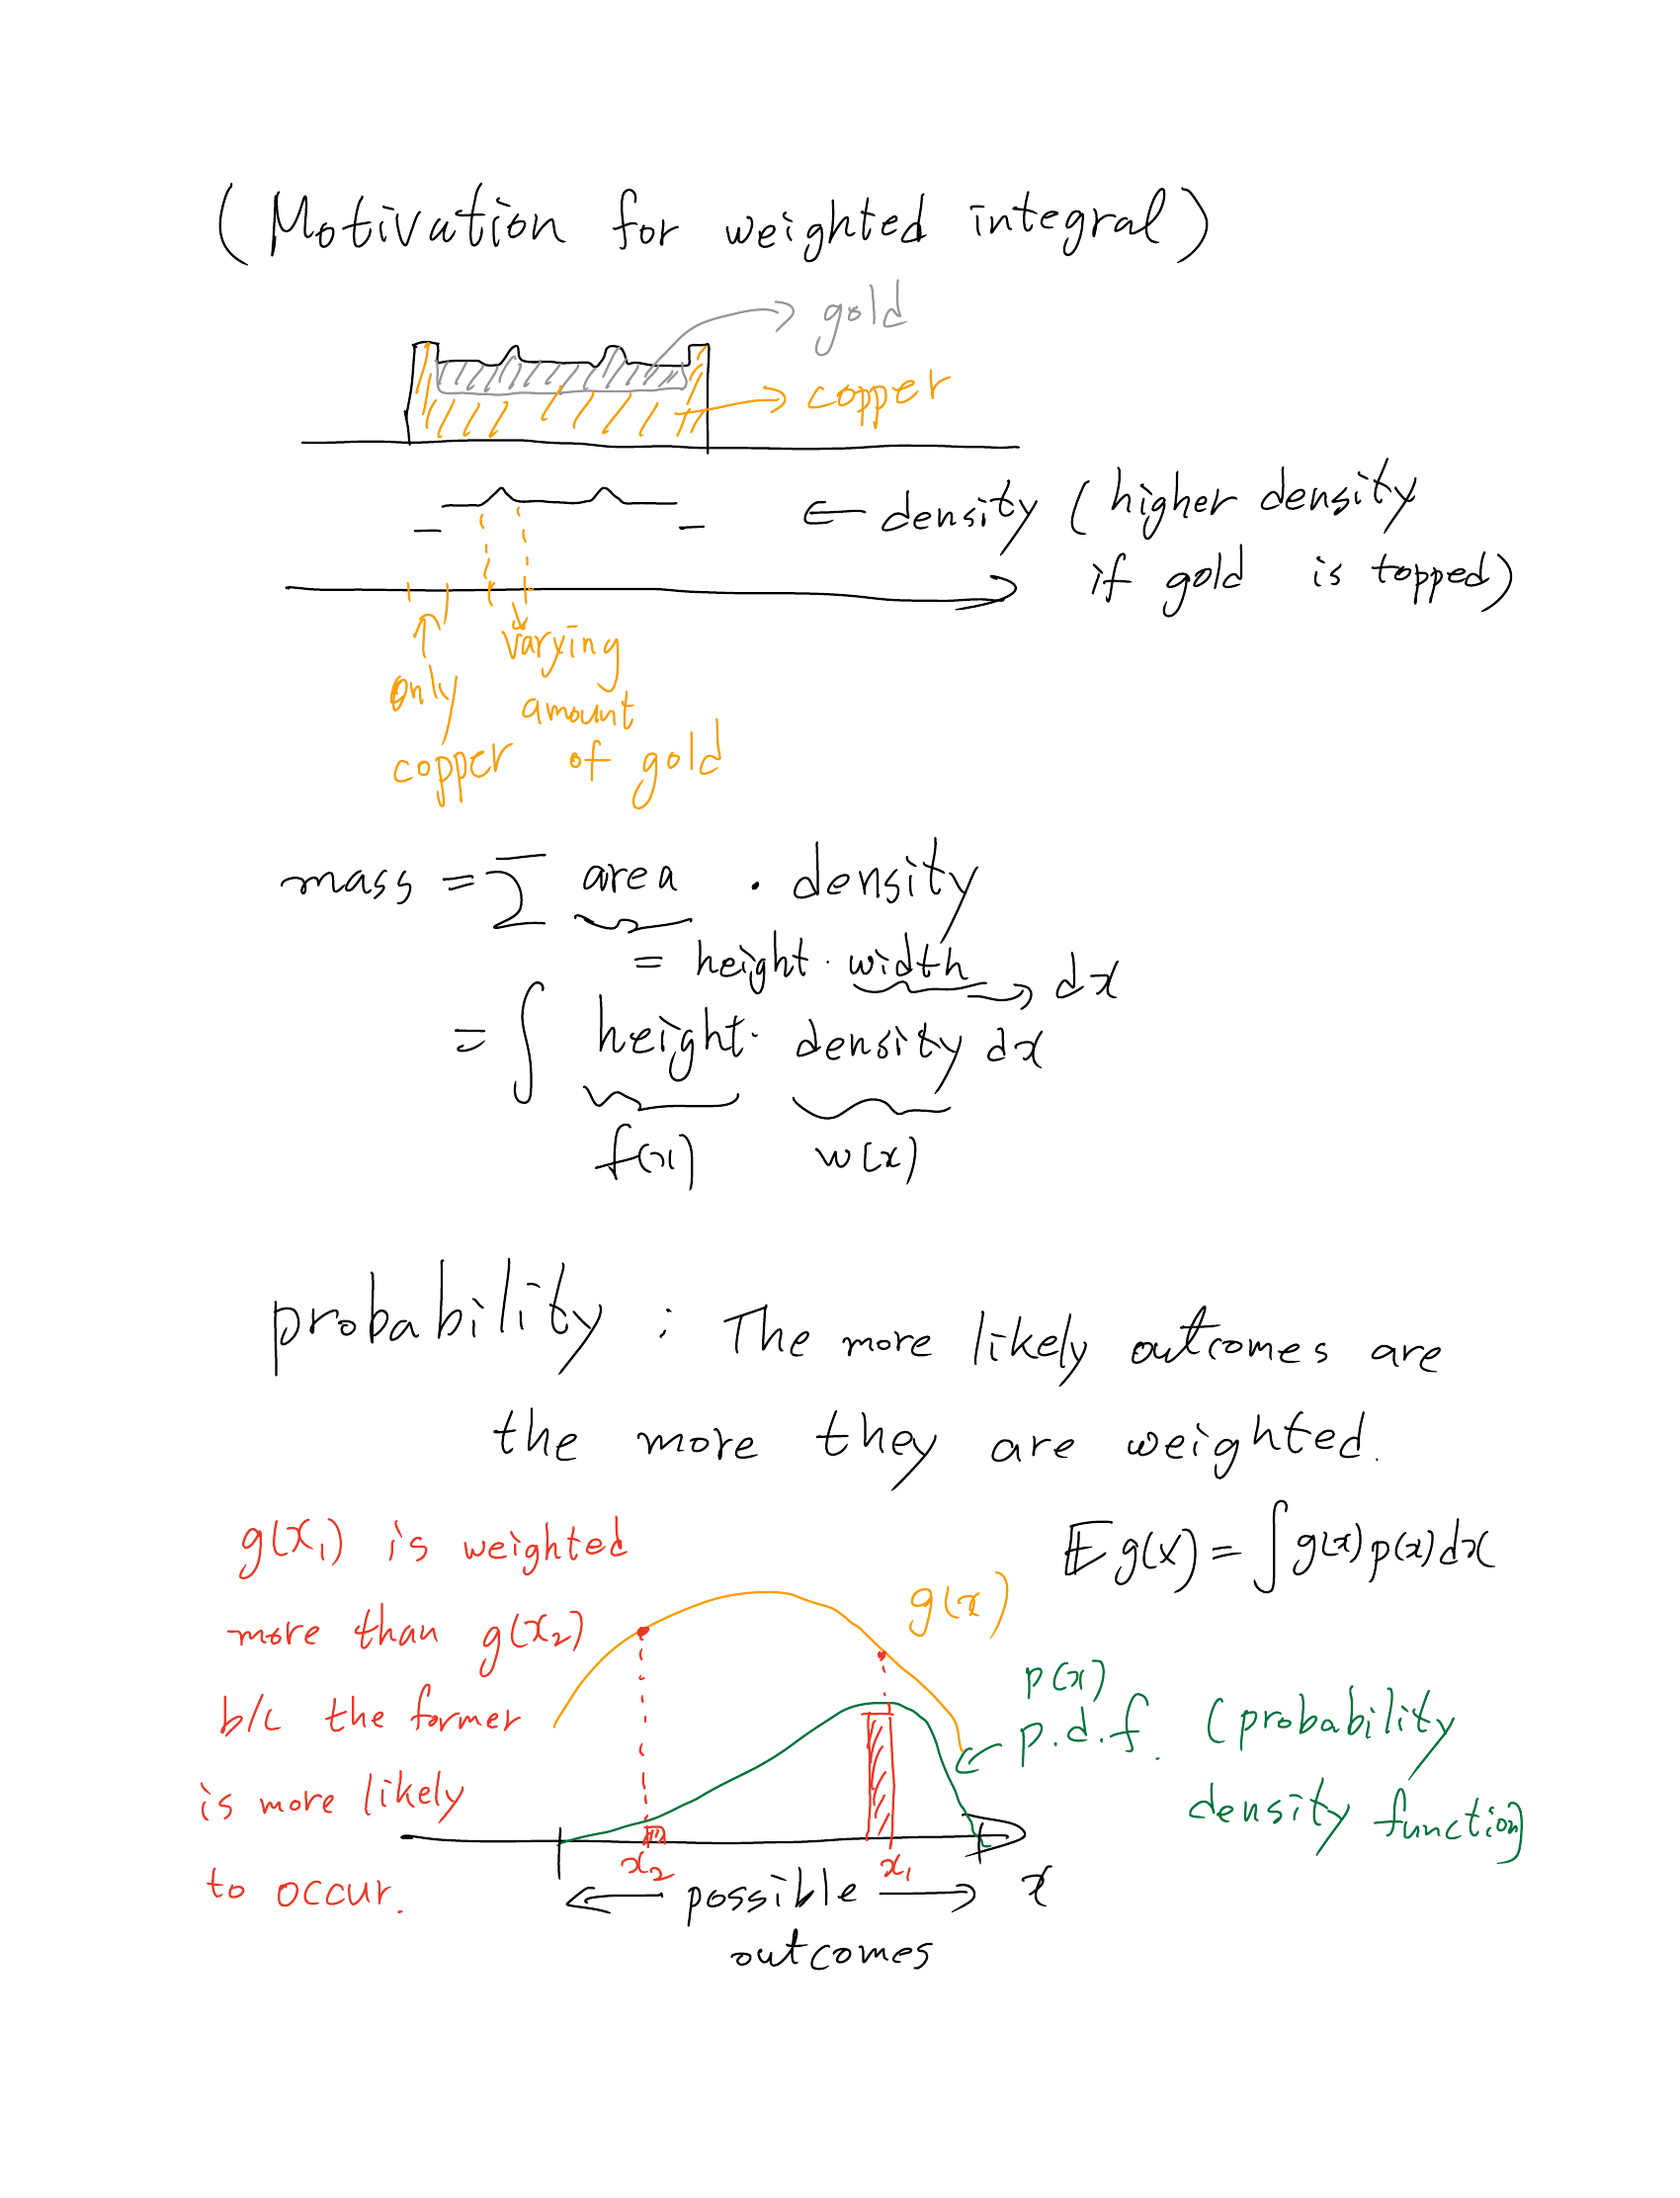 (Motivation for weighted integral)
gold
copper
← density (higher density
if gold is topped)
only
copper
varying
amount
of gold
mass = Σ area · density
= height · width → dx
= ∫ height · density dx
f(x) w(x)
probability : The more likely outcomes are
the more they are weighted.
𝔼 g(X) = ∫ g(x) p(x) dx
g(x₁) is weighted
more than g(x₂)
b/c the former
is more likely
to occur.
g(x)
p(x)
p.d.f. (probability
density function)
x₂ x₁
← possible → x
outcomes